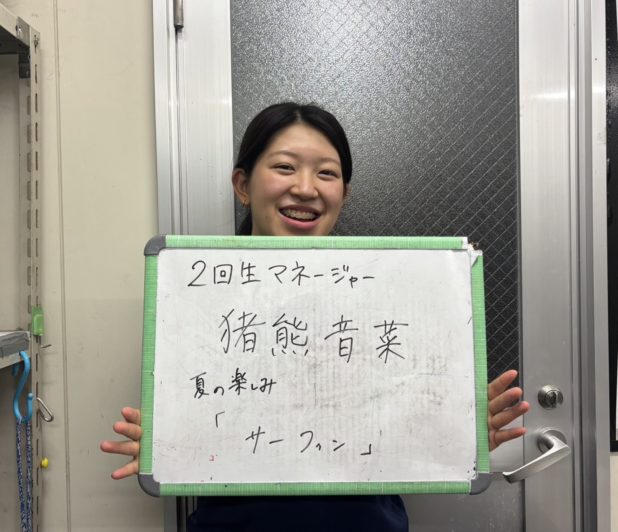 2回生マネージャー
猪熊音菜
夏の楽しみ
「
サーフィン」